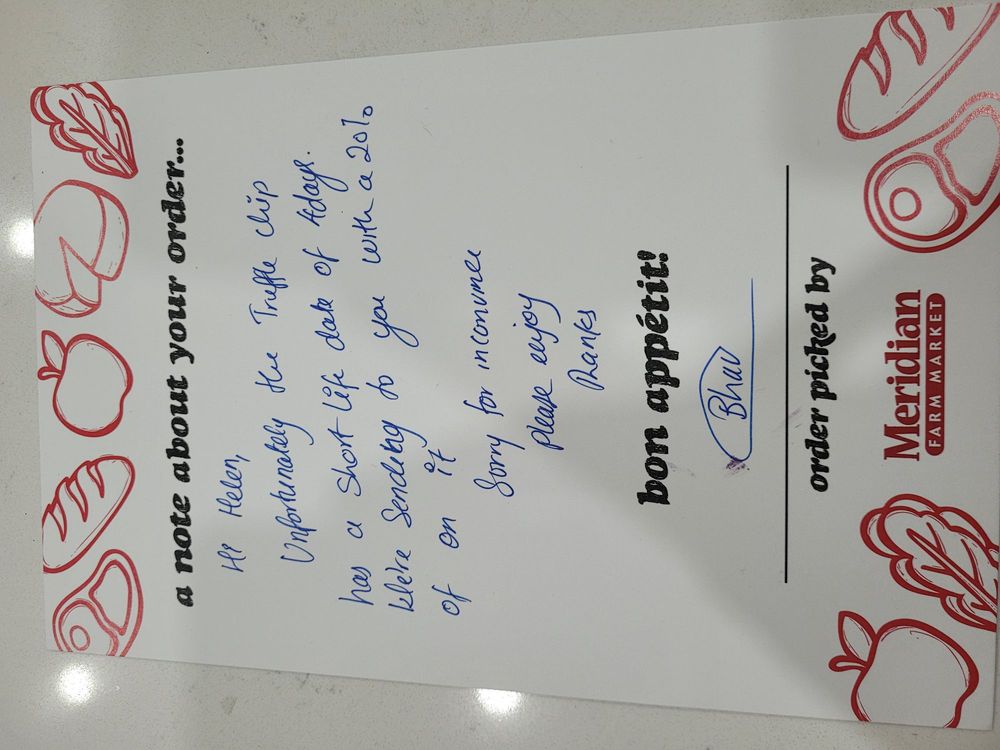 a note about your order...
Hi Helen,
Unfortunately the Truffle chip
has a short life date of 4days.
We're Sending to you with a 20%
of on it
Sorry for inconvinee
please enjoy
Thanks
bon appétit!
Bhav
order picked by
Meridian
FARM MARKET